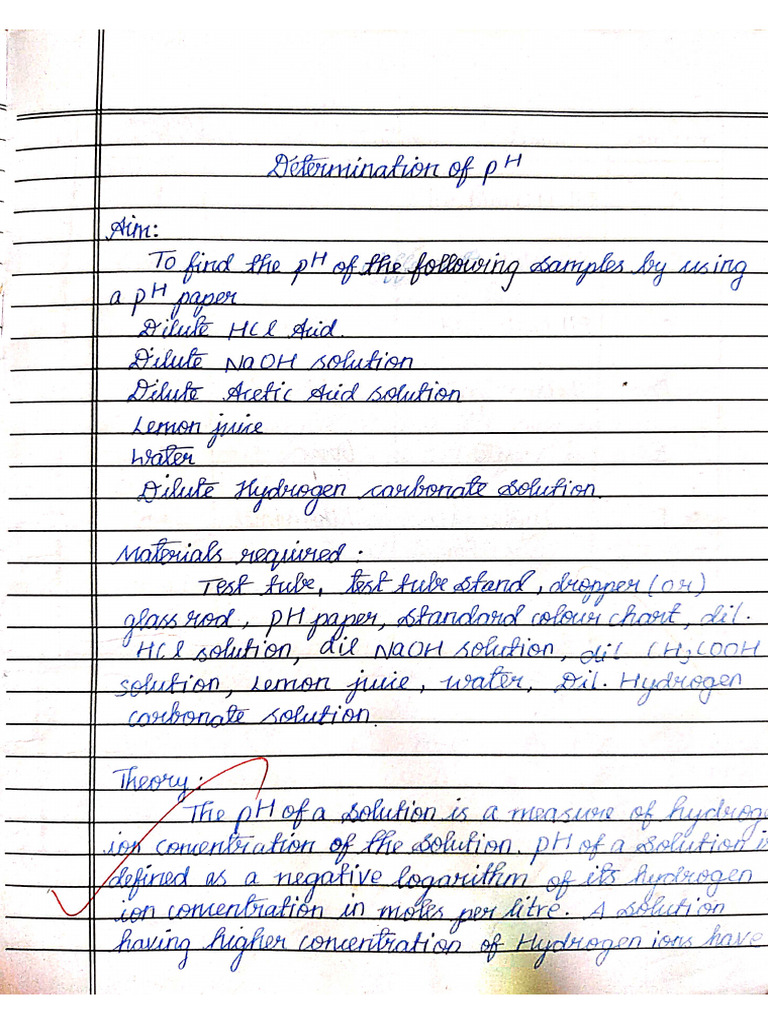 Determination of pH
Aim:
To find the pH of the following samples by using
a pH paper
Dilute HCl Acid.
Dilute NaOH solution
Dilute Acetic Acid solution
Lemon juice
Water
Dilute Hydrogen carbonate solution.
Materials required :
Test tube, test tube stand, dropper (or)
glass rod, pH paper, standard colour chart, dil.
HCl solution, dil NaOH solution, dil CH3COOH
solution, Lemon juice, water, Dil. Hydrogen
carbonate solution.
Theory :
The pH of a solution is a measure of hydroge
ion concentration of the solution. pH of a solution is
defined as a negative logarithm of its hydrogen
ion concentration in moles per litre. A solution
having higher concentration of Hydrogen ions have